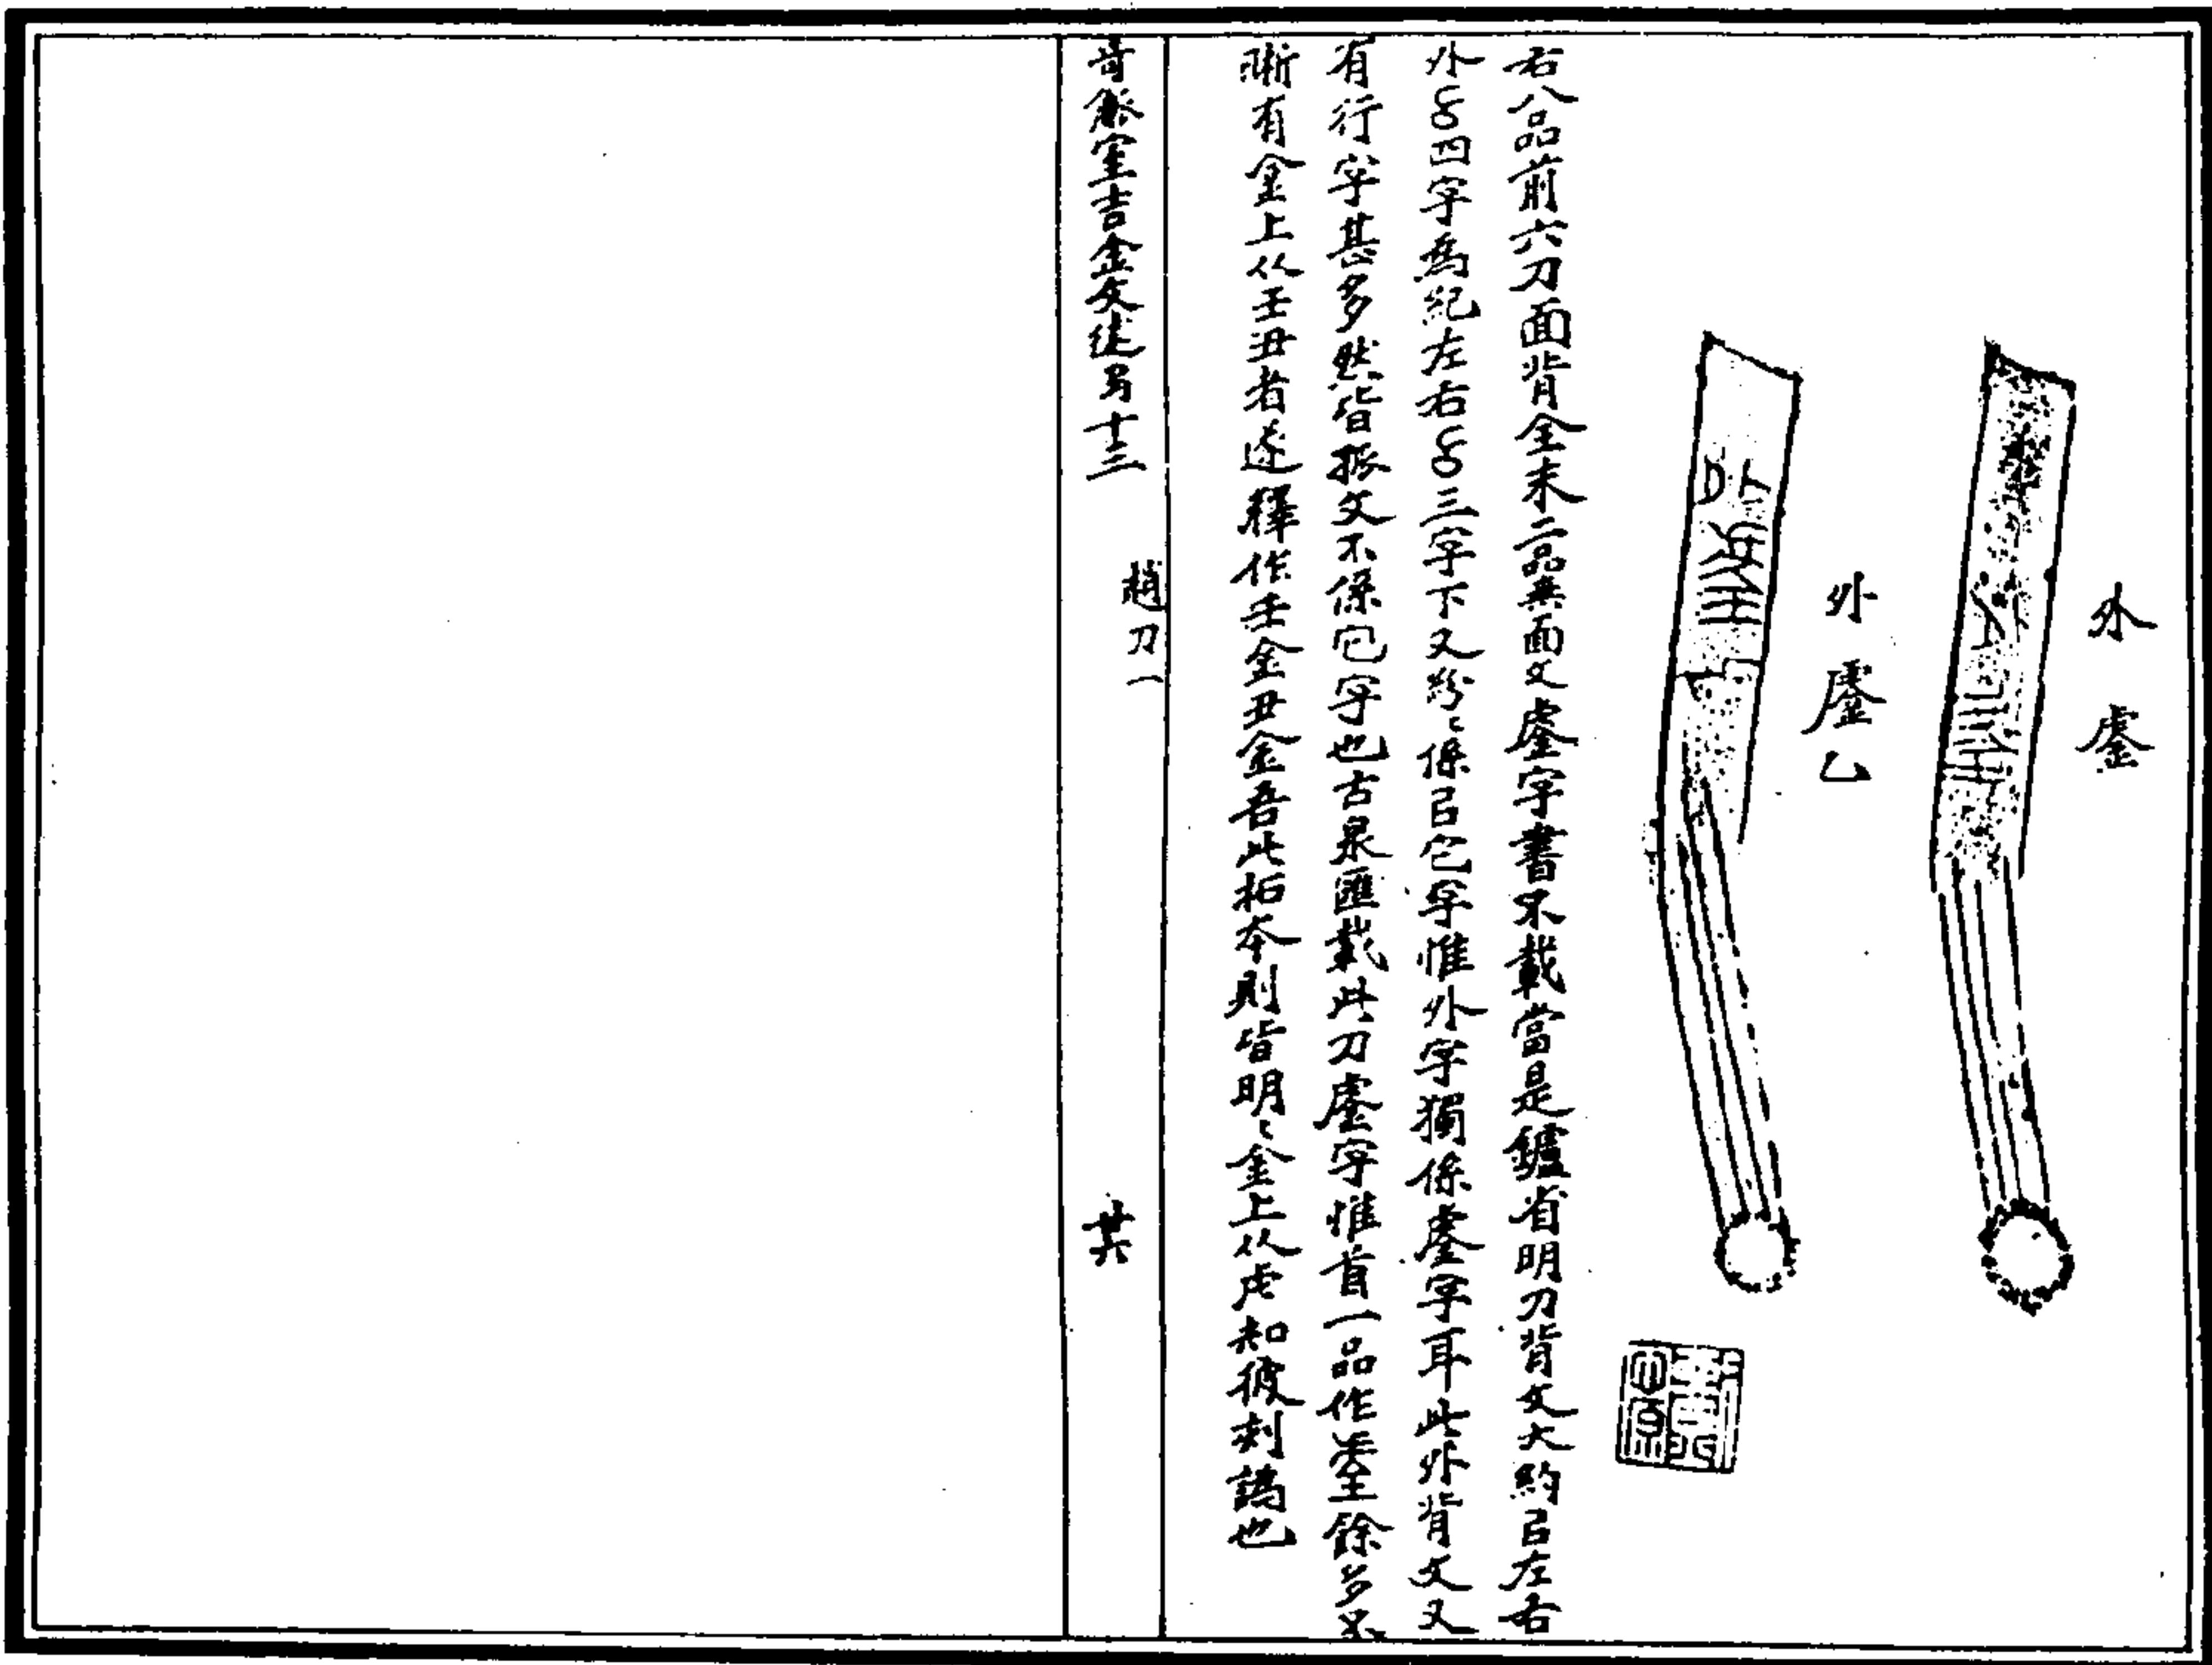 外鏖
外鏖乙
右八品前六刀面背全末二品無面文字書不載當是鑪省明刀背文大約㠯左右
外四字為紀左右三字下又紛〻係㠯它字惟外字獨係字耳此外背文又
有行字甚多然皆撫文不係它字也古泉匯載此刀字惟首一品作餘多不
晰有金上从壬丑者遂釋作壬金丑金吾此拓本則皆明〻金上从虍知彼刻譌也
奇觚室吉金文述𢎥十三
趙刀一
廿六